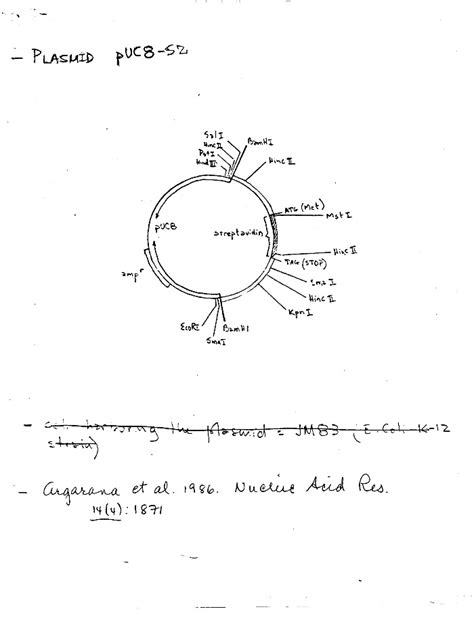 - PLASMID pUC8-S2
Sal I
Hinc II
Pst I
Hind III
BamHI
Hinc II
ATG (Met)
Mst I
pUC8
streptavidin
Hinc II
TAG (STOP)
Sma I
Hinc II
Kpn I
amp r
EcoRI
BamHI
SmaI
- cell harboring the plasmid = JM83 (E. Coli K-12
strain)
- Argarana et al. 1986. Nucleic Acid Res.
14(4): 1871